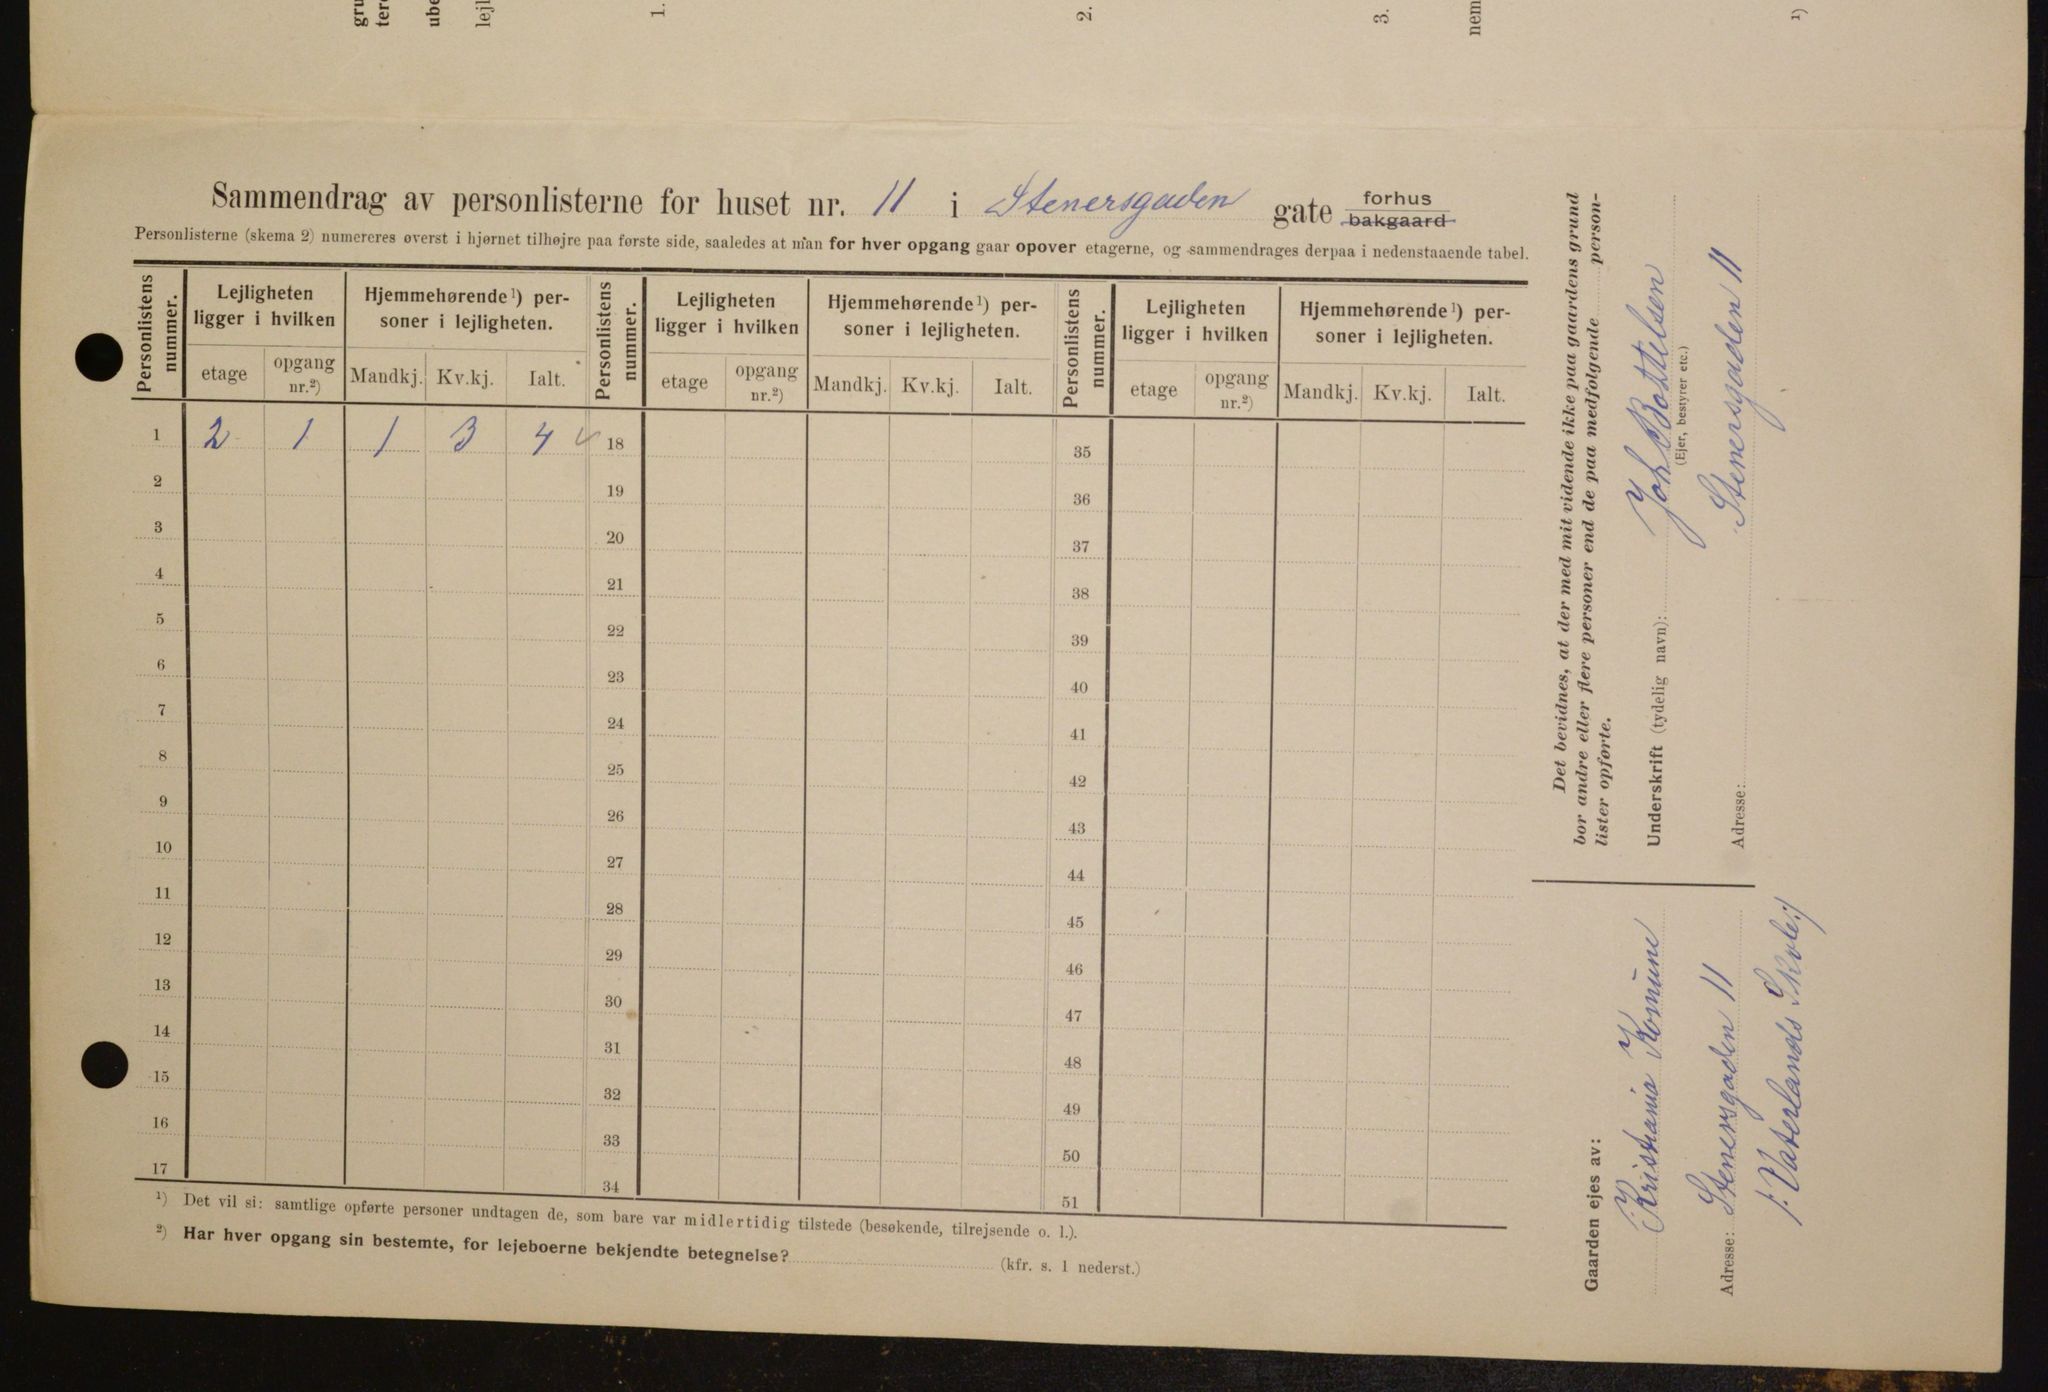 Sammendrag av personlisterne for huset nr. 11 i Stenersgaden gate forhus bakgaard
Personlisterne (skema 2) numereres øverst i hjørnet tilhøjre paa første side, saaledes at man for hver opgang gaar opover etagerne, og sammendrages derpaa i nedenstaaende tabel.
Personlistens nummer.
Lejligheten ligger i hvilken
etage
opgang nr.²)
Hjemmehørende¹) personer i lejligheten.
Mandkj.
Kv.kj.
Ialt.
Personlistens nummer.
Lejligheten ligger i hvilken
etage
opgang nr.²)
Hjemmehørende¹) personer i lejligheten.
Mandkj.
Kv.kj.
Ialt.
Personlistens nummer.
Lejligheten ligger i hvilken
etage
opgang nr.²)
Hjemmehørende¹) personer i lejligheten.
Mandkj.
Kv.kj.
Ialt.
1 2 1 1 3 4 18 35
2 19 36
3 20 37
4 21 38
5 22 39
6 23 40
7 24 41
8 25 42
9 26 43
10 27 44
11 28 45
12 29 46
13 30 47
14 31 48
15 32 49
16 33 50
17 34 51
¹) Det vil si: samtlige opførte personer undtagen de, som bare var midlertidig tilstede (besøkende, tilrejsende o. l.).
²) Har hver opgang sin bestemte, for lejeboerne bekjendte betegnelse? (kfr. s. 1 nederst.)
Det bevidnes, at der med mit vidende ikke paa gaardens grund
bor andre eller flere personer end de paa medfølgende person-
lister opførte.
Underskrift (tydelig navn): Joh Bottelsen
(Ejer, bestyrer etc.)
Adresse: Stenersgaden 11
Gaarden ejes av:
Kristiania Komune
Adresse: Stenersgaden 11
/: Vaterlands Skole :/
1.
2.
3.
nem
¹)
gru
tere
ube
lejl